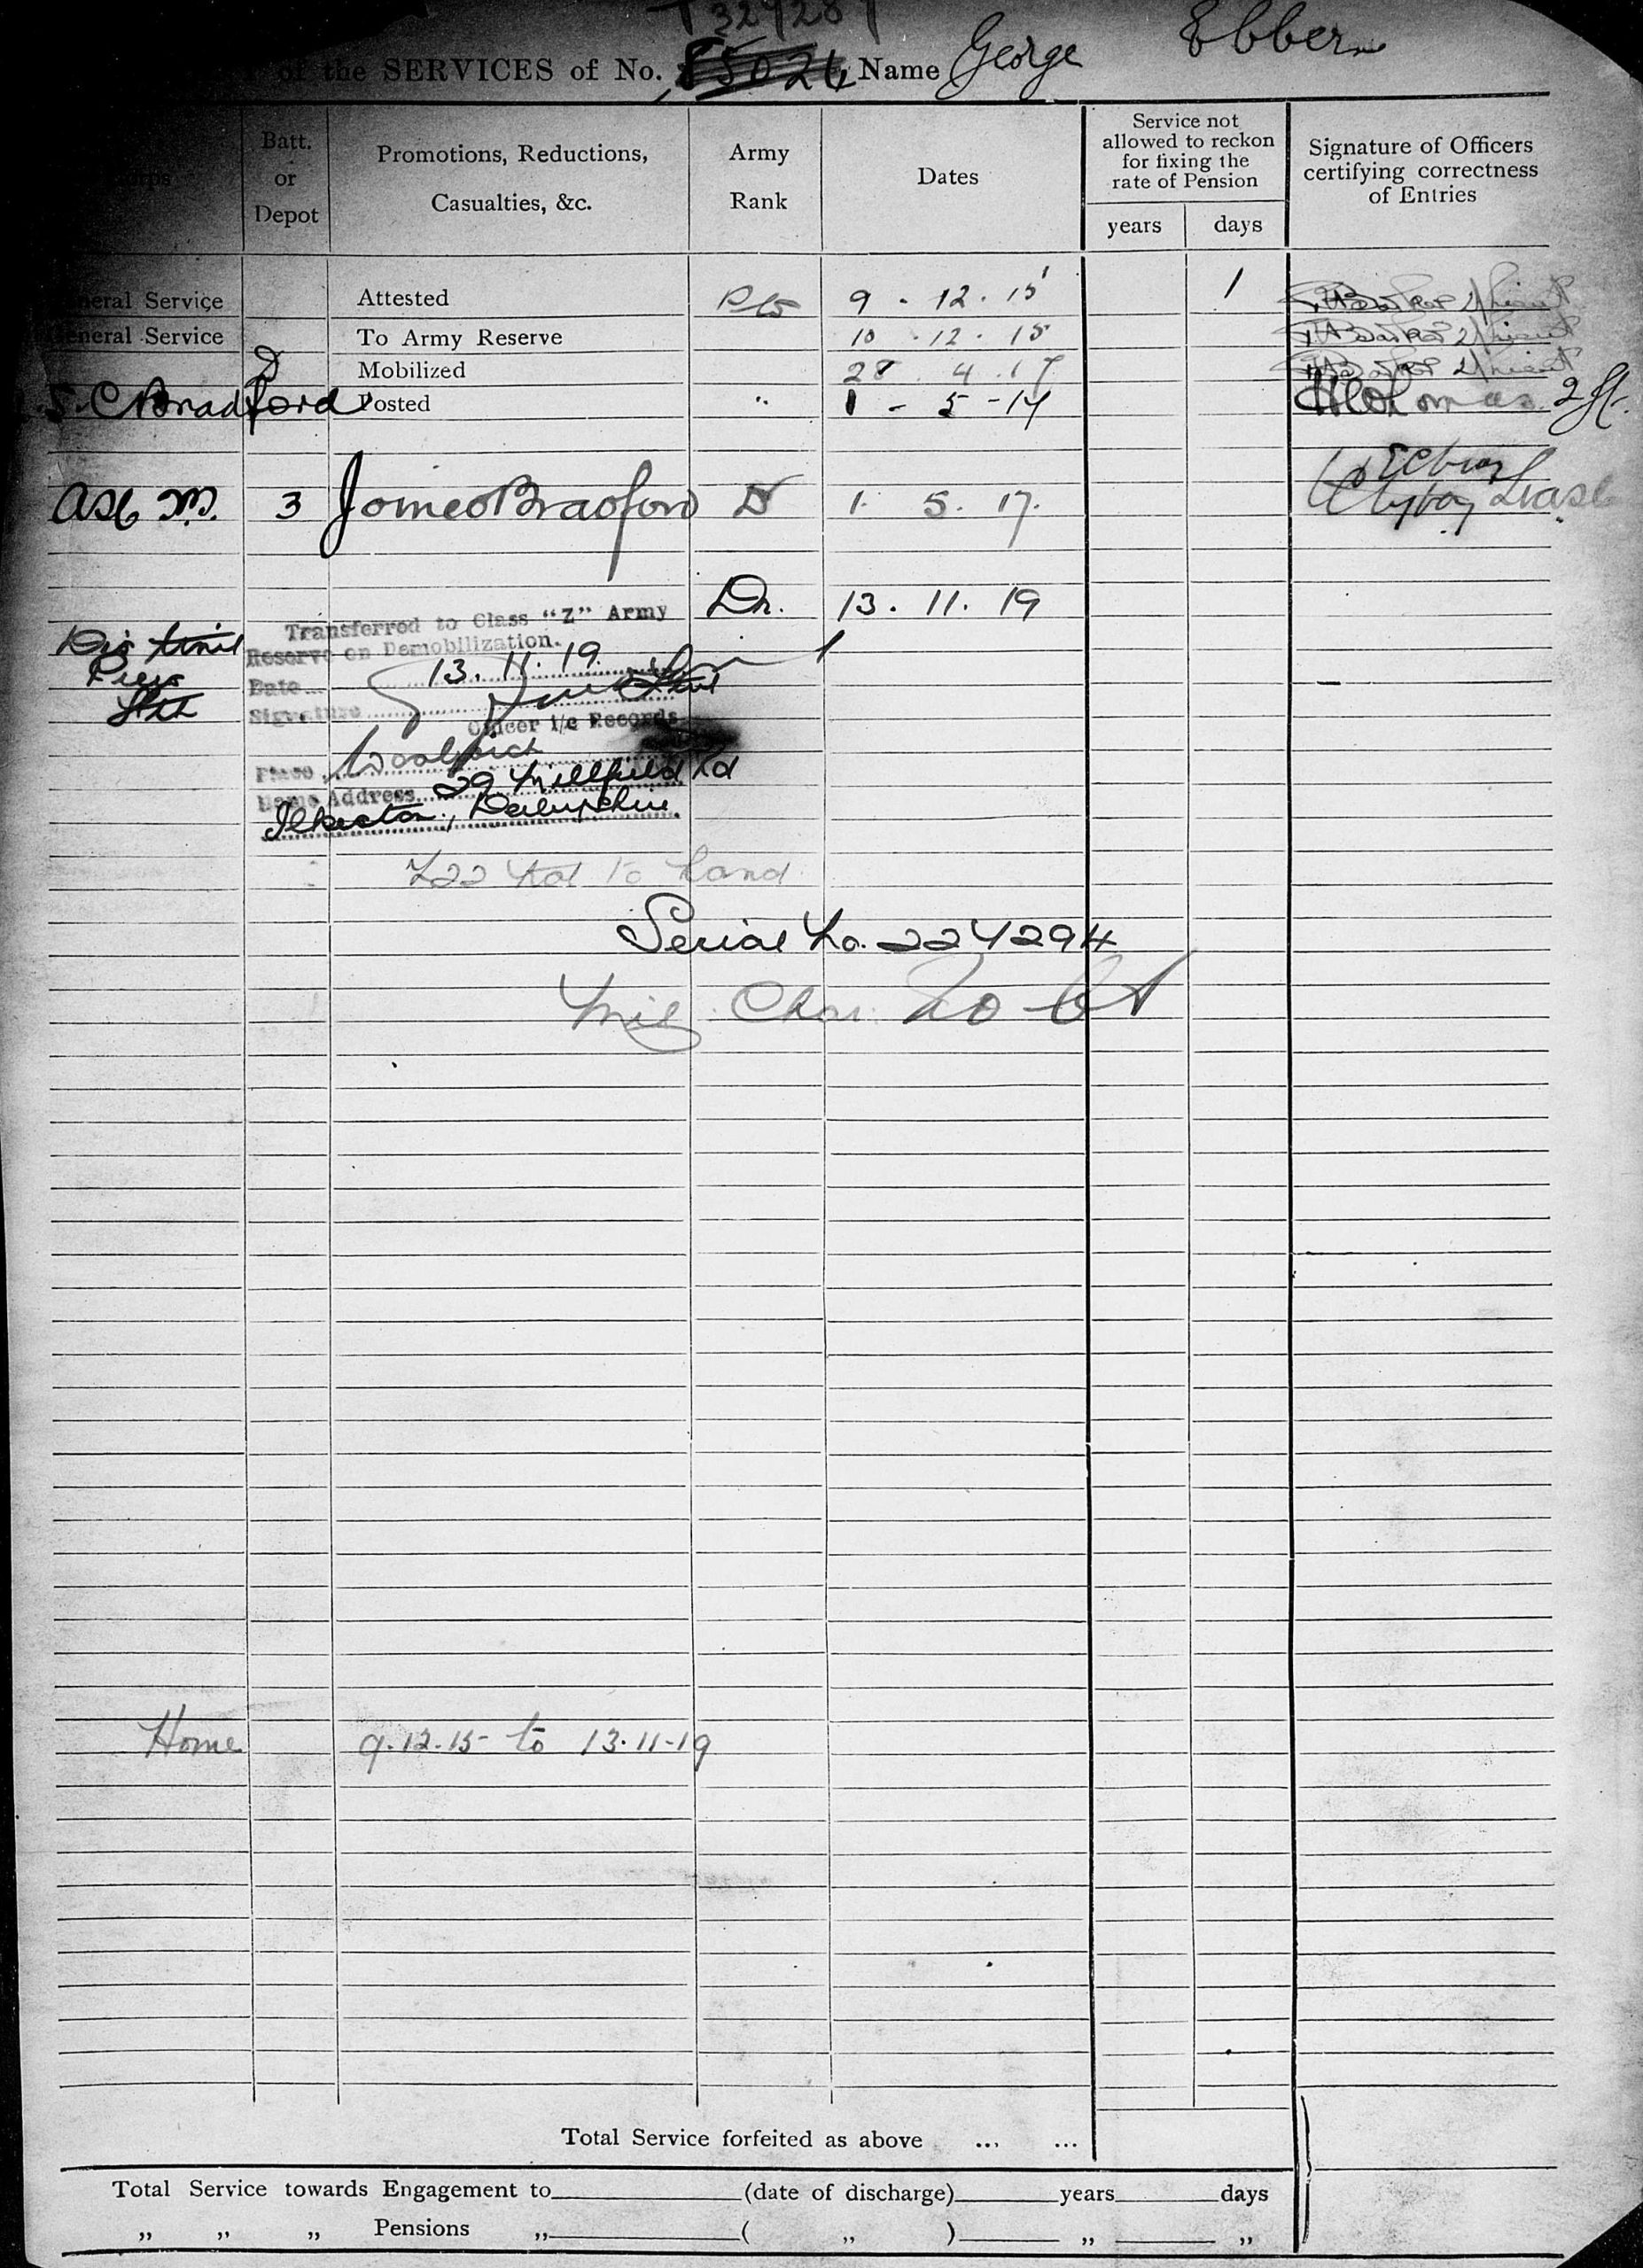 T 329287
of the SERVICES of No. 85026 Name George Ebbern
Corps
Batt. or Depot
Promotions, Reductions, Casualties, &c.
Army Rank
Dates
Service not allowed to reckon for fixing the rate of Pension
years days
Signature of Officers certifying correctness of Entries
General Service Attested Pte 9 . 12 . 15 1
General Service To Army Reserve 10 . 12 . 15
D Mobilized 28 . 4 . 17
S.C Bradford Posted " 1 - 5 - 17
ASC 3 Joined Bradford D 1. 5. 17.
Dr. 13 . 11. 19
Transferred to Class "Z" Army
Reserve on Demobilization.
Date 13. 11. 19.
Signature
Officer i/c Records
Place Woolwich
Home Address 29 Millfield Rd
Ilkeston, Derbyshire
Z22 Not to hand
Serial No. 227294
Mil Char
Home 9.12.15 to 13.11.19
Total Service forfeited as above ... ...
Total Service towards Engagement to (date of discharge) years days
" " " Pensions " ( " ) " "